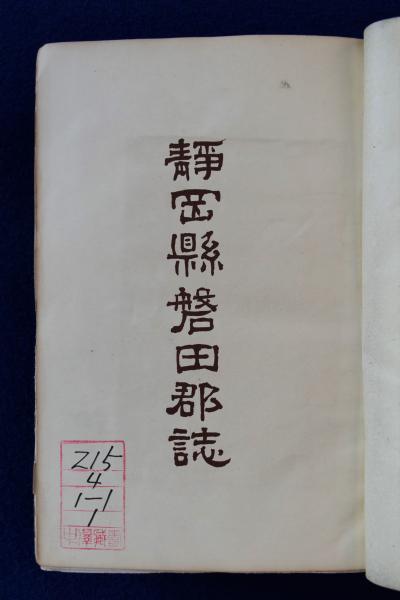 靜岡縣磐田郡誌
215
4
1-1
1